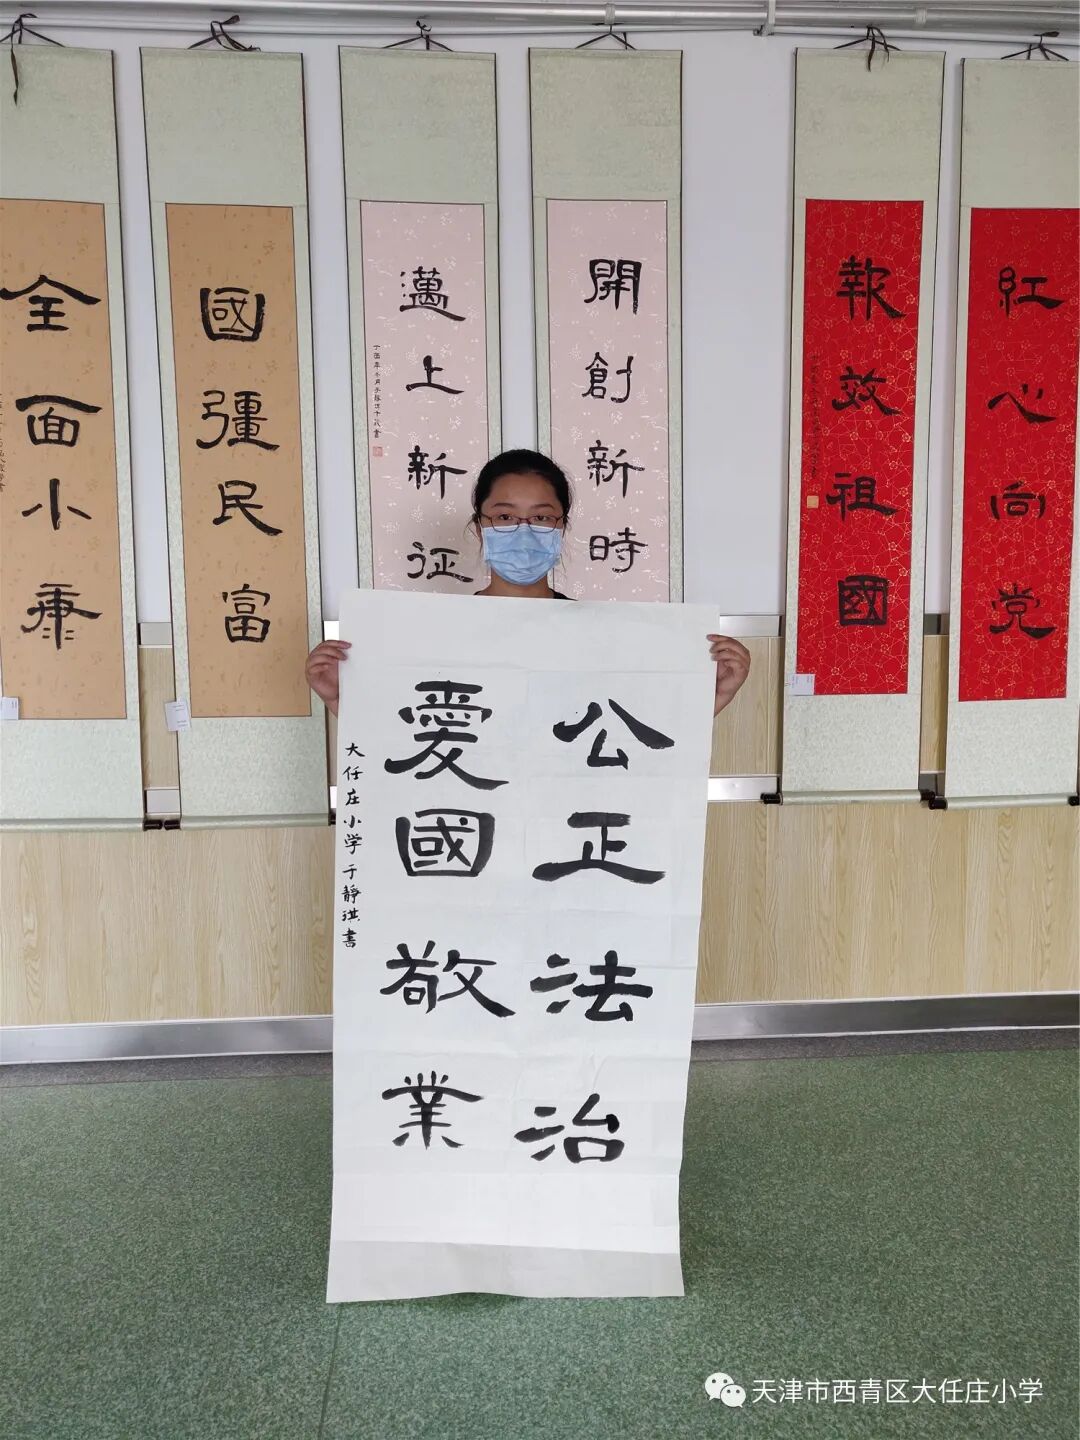 紅心向党
報效祖國
開創新時
邁上新征
國彊民富
全面小康
公正法治
愛國敬業
大任庄小学于静琪書
天津市西青区大任庄小学